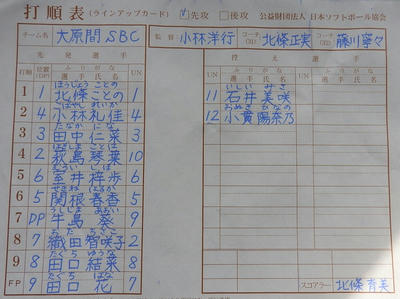 打順表 (ラインアップカード) ✓先攻 □後攻 公益財団法人 日本ソフトボール協会
チーム名 大原間SBC 監督 (30) 小林洋行 コーチ (31) 北條正実 コーチ (32) 藤川寧々
先発選手 控え選手
打順 位置 (DP) ふりがな 選手氏名 UN UN ふりがな 選手氏名 UN ふりがな 選手氏名
1 1 ほうじょう ことの 北條ことの 1 11 いしい みさき 石井美咲
2 4 こばやし れいか 小林礼佳 4 12 おぬき ひなの 小貫陽奈乃
3 3 たなか にな 田中仁菜 3
4 2 荻島琴葉 10
5 6 室井梓歩 6
6 5 せきね はるか 関根春香 5
7 DP うしじま あおい 牛島葵 9
8 7 おだ ちさこ 織田智咲子 2
9 8 たぐち ゆうな 田口結菜 8
FP 9 たぐち はな 田口花 7
スコアラー 北條育美